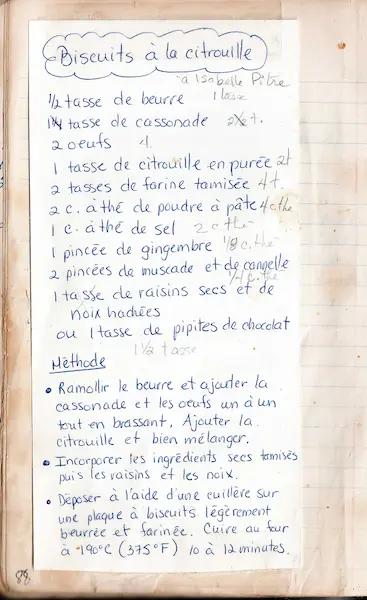 Biscuits à la citrouille
à Isabelle Pitre
1/2 tasse de beurre 1 tasse
tasse de cassonade
2 oeufs 4
1 tasse de citrouille en purée 2t
2 tasses de farine tamisée 4t.
2 c. à thé de poudre à pâte 4 c. thé
1 c. à thé de sel 2 c. thé
1 pincée de gingembre 1/8 c. thé
2 pincées de muscade et de cannelle
1/4 c. thé
1 tasse de raisins secs et de
noix hachées
ou 1 tasse de pipites de chocolat
1 1/2 tasse
Méthode
• Ramollir le beurre et ajouter la
cassonade et les oeufs un à un
tout en brassant. Ajouter la
citrouille et bien mélanger.
• Incorporer les ingrédients secs tamisés
puis les raisins et les noix.
• Déposer à l'aide d'une cuillère sur
une plaque à biscuits légèrement
beurrée et farinée. Cuire au four
à 190°C (375°F) 10 à 12 minutes.
88